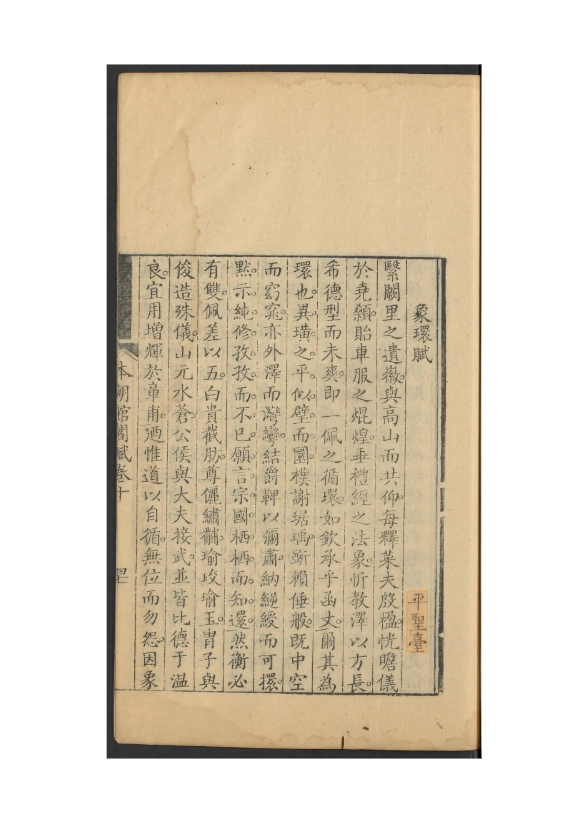 象環賦
平聖臺
繄闕里之遺徽與高山而共仰每釋菜夫殷楹恍瞻儀
於堯顙貽車服之焜煌垂禮經之法象忻教澤以方長
希德型而未爽即一佩之循環如欽承乎函丈爾其為
環也異璜之平似璧而圜樸謝琚瑀斲賴倕般既中空
而窈窕亦外澤而灣彎結爵韠以彌肅納綖綬而可擐
黙示純修孜孜而不已願言宗國栖栖而知還然衡必
有雙佩差以五白貴截肪尊儷繡黼瑜玟瑜玉冑子與
俊造殊儀山元水蒼公侯與大夫接武並皆比德于温
良宜用增輝於章甫廼惟道以自循無位而勿怨因象
本朝館閣賦卷十